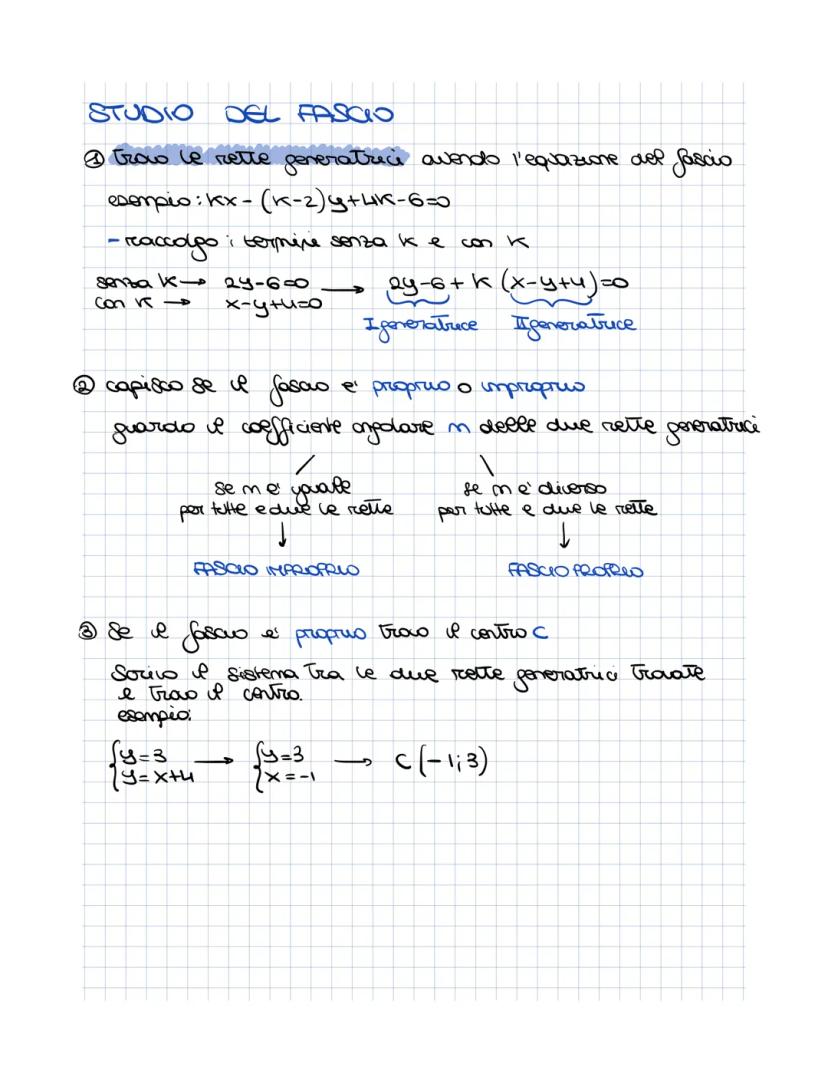 STUDIO DEL FASCIO
① trovo le rette generatrici avendo l'equazione del fascio
esempio: kx - (k-2)y+4k-6=0
- raccolgo i termini senza k e con k
senza k → 2y-6=0 → 2y-6 + k (x-y+4)=0
con k → x-y+4=0
I generatrice II generatrice
② capisco se il fascio è proprio o improprio
guardo il coefficiente angolare m delle due rette generatrici
se m è uguale se m è diverso
per tutte e due le rette per tutte e due le rette
↓ ↓
FASCIO IMPROPRIO FASCIO PROPRIO
③ Se il fascio è proprio trovo il centro C
Scrivo il sistema tra le due rette generatrici trovate
e trovo il centro.
esempio:
{y=3 → {y=3 → C(-1;3)
{y=x+4 {x=-1